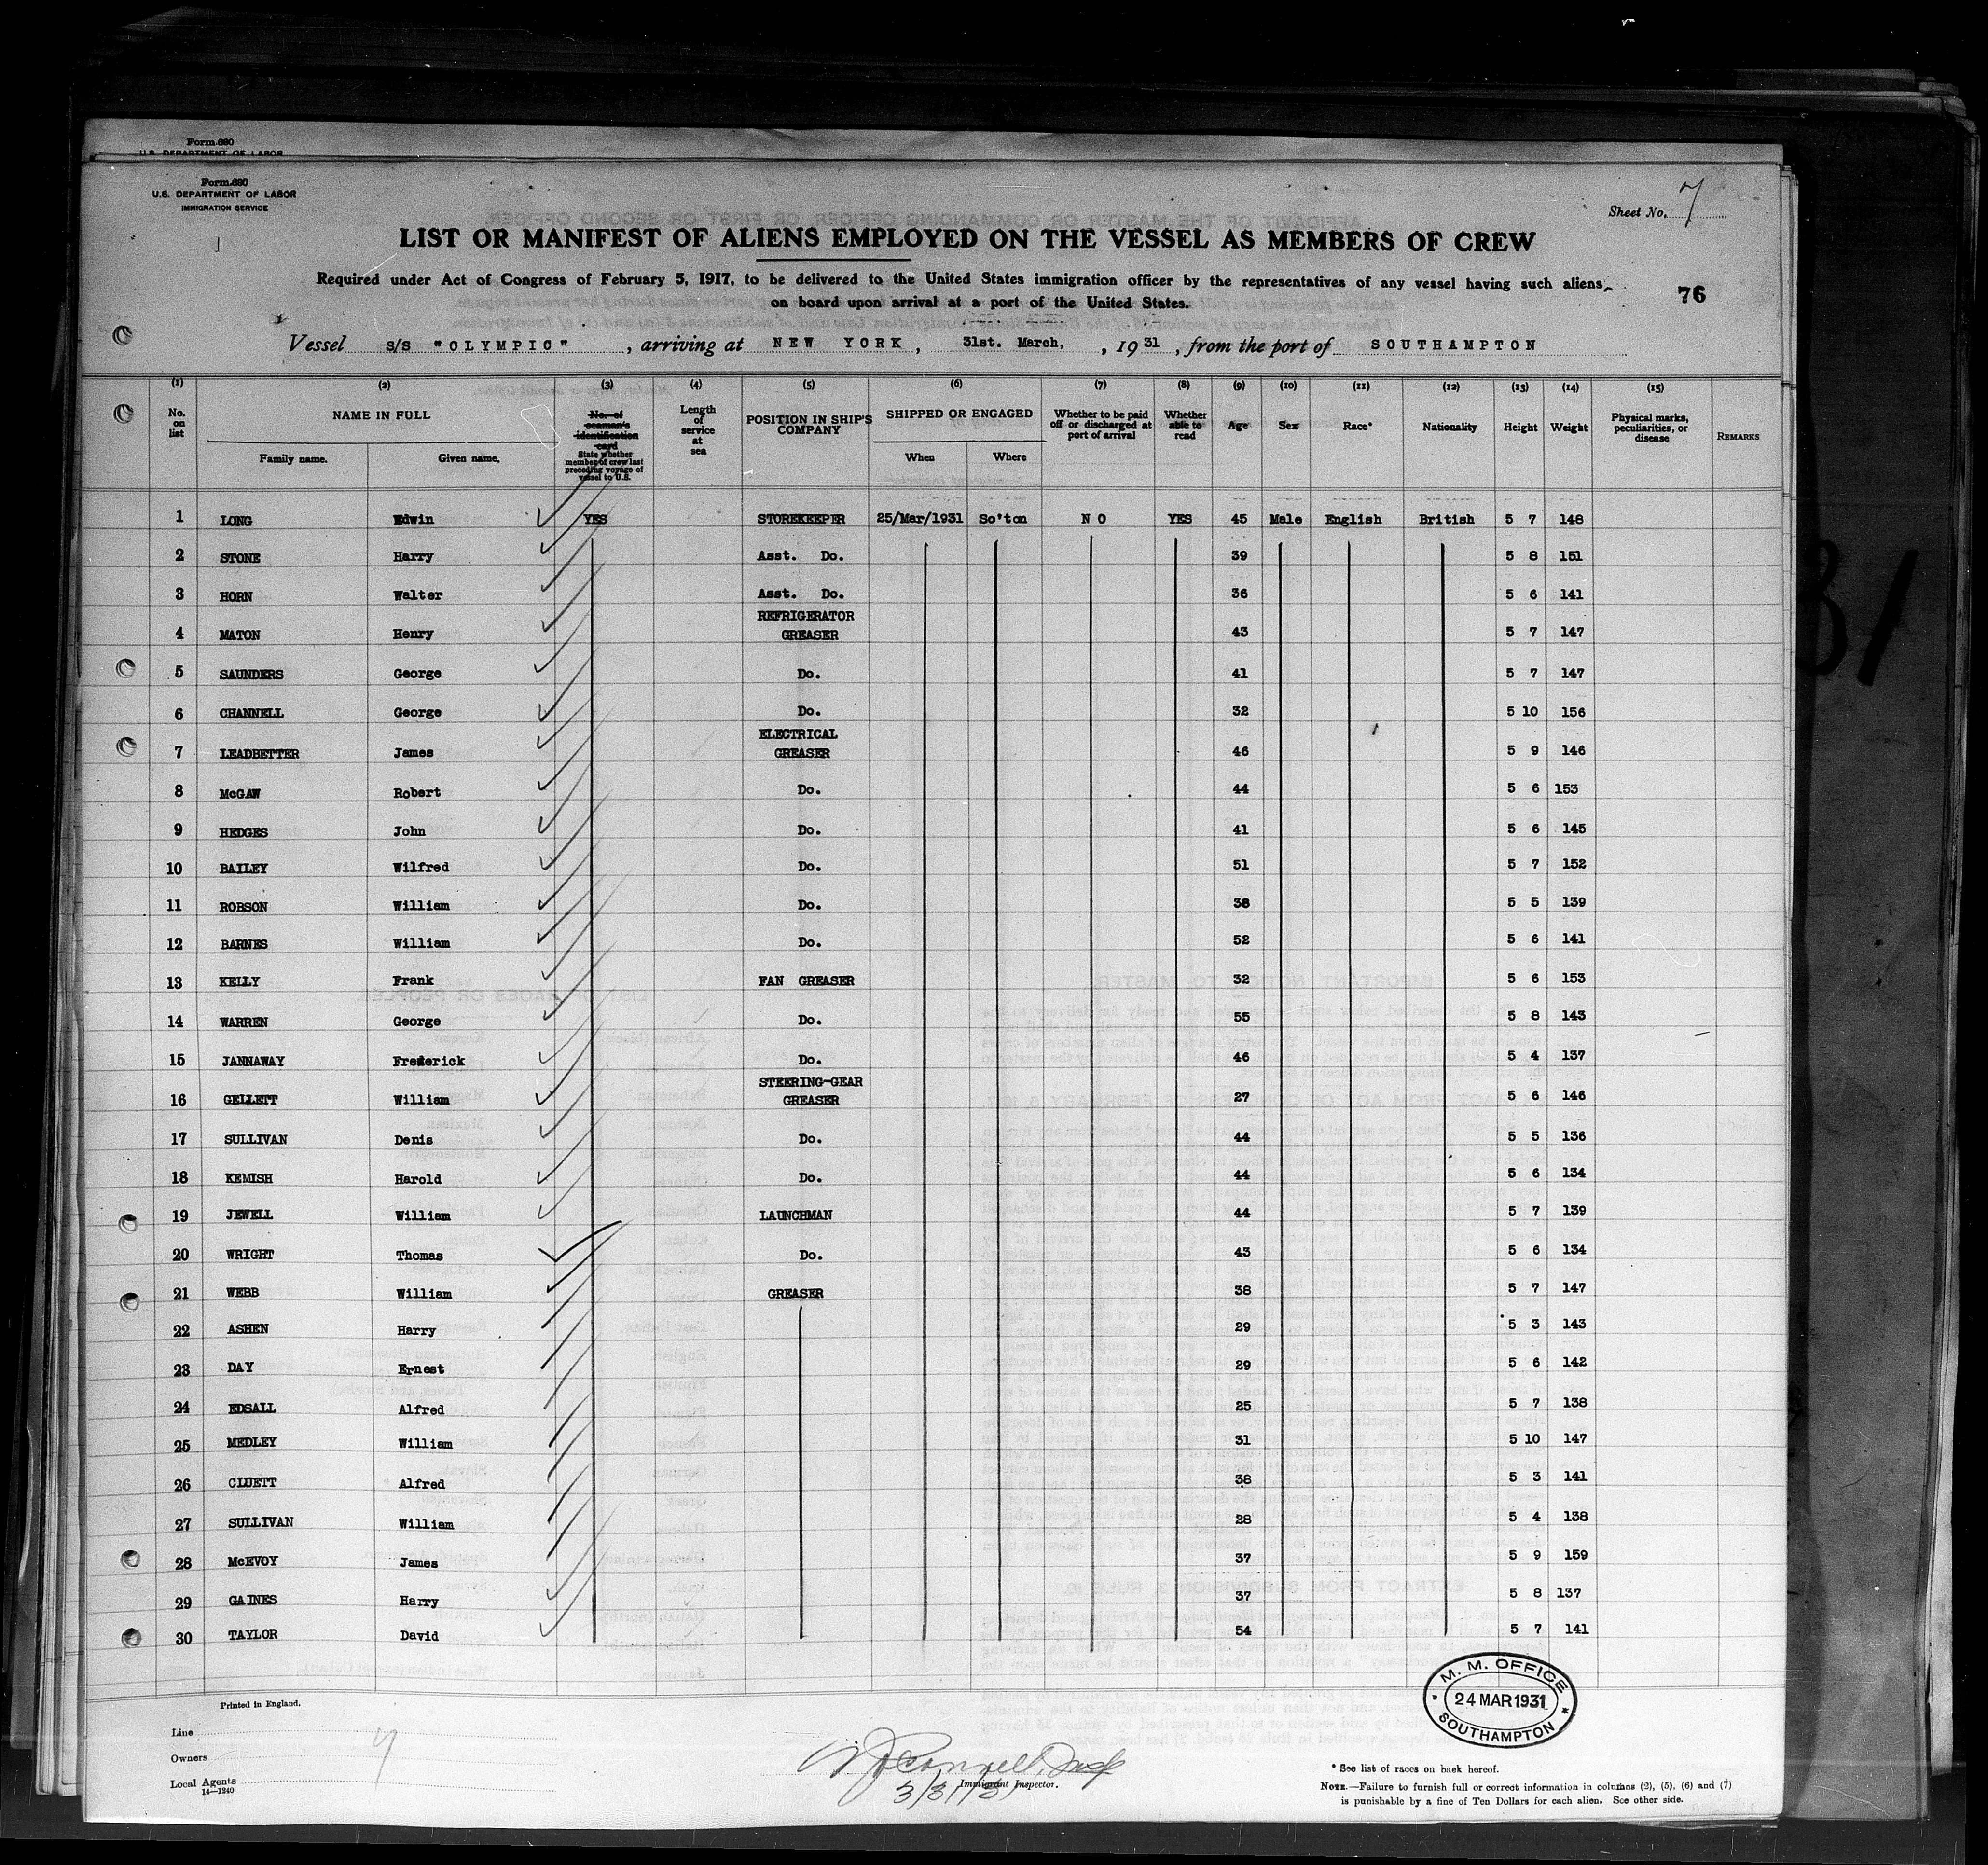 Form 680
U.S. DEPARTMENT OF LABOR
Form 680
U.S. DEPARTMENT OF LABOR
IMMIGRATION SERVICE
Sheet No. 7
LIST OR MANIFEST OF ALIENS EMPLOYED ON THE VESSEL AS MEMBERS OF CREW
Required under Act of Congress of February 5, 1917, to be delivered to the United States immigration officer by the representatives of any vessel having such aliens
on board upon arrival at a port of the United States.
76
Vessel S/S "OLYMPIC", arriving at NEW YORK, 31st. March, , 1931, from the port of SOUTHAMPTON
(1) (2) (3) (4) (5) (6) (7) (8) (9) (10) (11) (12) (13) (14) (15)
No. on list NAME IN FULL Family name. Given name. No. of seaman's identification card State whether member of crew last preceding voyage of vessel to U.S. Length of service at sea POSITION IN SHIP'S COMPANY SHIPPED OR ENGAGED When Where Whether to be paid off or discharged at port of arrival Whether able to read Age Sex Race* Nationality Height Weight Physical marks, peculiarities, or disease REMARKS
1 LONG Edwin YES STOREKEEPER 25/Mar/1931 So'ton NO YES 45 Male English British 5 7 148
2 STONE Harry Asst. Do. 39 5 8 151
3 HORN Walter Asst. Do. 36 5 6 141
4 MATON Henry REFRIGERATOR GREASER 43 5 7 147
5 SAUNDERS George Do. 41 5 7 147
6 CHANNELL George Do. 32 5 10 156
7 LEADBETTER James ELECTRICAL GREASER 46 5 9 146
8 McGAW Robert Do. 44 5 6 153
9 HEDGES John Do. 41 5 6 145
10 BAILEY Wilfred Do. 51 5 7 152
11 ROBSON William Do. 38 5 5 139
12 BARNES William Do. 52 5 6 141
13 KELLY Frank FAN GREASER 32 5 6 153
14 WARREN George Do. 55 5 8 143
15 JANNAWAY Frederick Do. 46 5 4 137
16 GELLETT William STEERING-GEAR GREASER 27 5 6 146
17 SULLIVAN Denis Do. 44 5 5 136
18 KEMISH Harold Do. 44 5 6 134
19 JEWELL William LAUNCHMAN 44 5 7 139
20 WRIGHT Thomas Do. 43 5 6 134
21 WEBB William GREASER 38 5 7 147
22 ASHEN Harry 29 5 3 143
23 DAY Ernest 29 5 6 142
24 EDSALL Alfred 25 5 7 138
25 MEDLEY William 31 5 10 147
26 CLUETT Alfred 38 5 3 141
27 SULLIVAN William 28 5 4 138
28 McEVOY James 37 5 9 159
29 GAINES Harry 37 5 8 137
30 TAYLOR David 54 5 7 141
M. M. OFFICE
24 MAR 1931
SOUTHAMPTON
Printed in England.
Line
Owners
Local Agents
14—1240
3/31/31
Immigrant Inspector.
* See list of races on back hereof.
NOTE.—Failure to furnish full or correct information in columns (2), (5), (6) and (7)
is punishable by a fine of Ten Dollars for each alien. See other side.